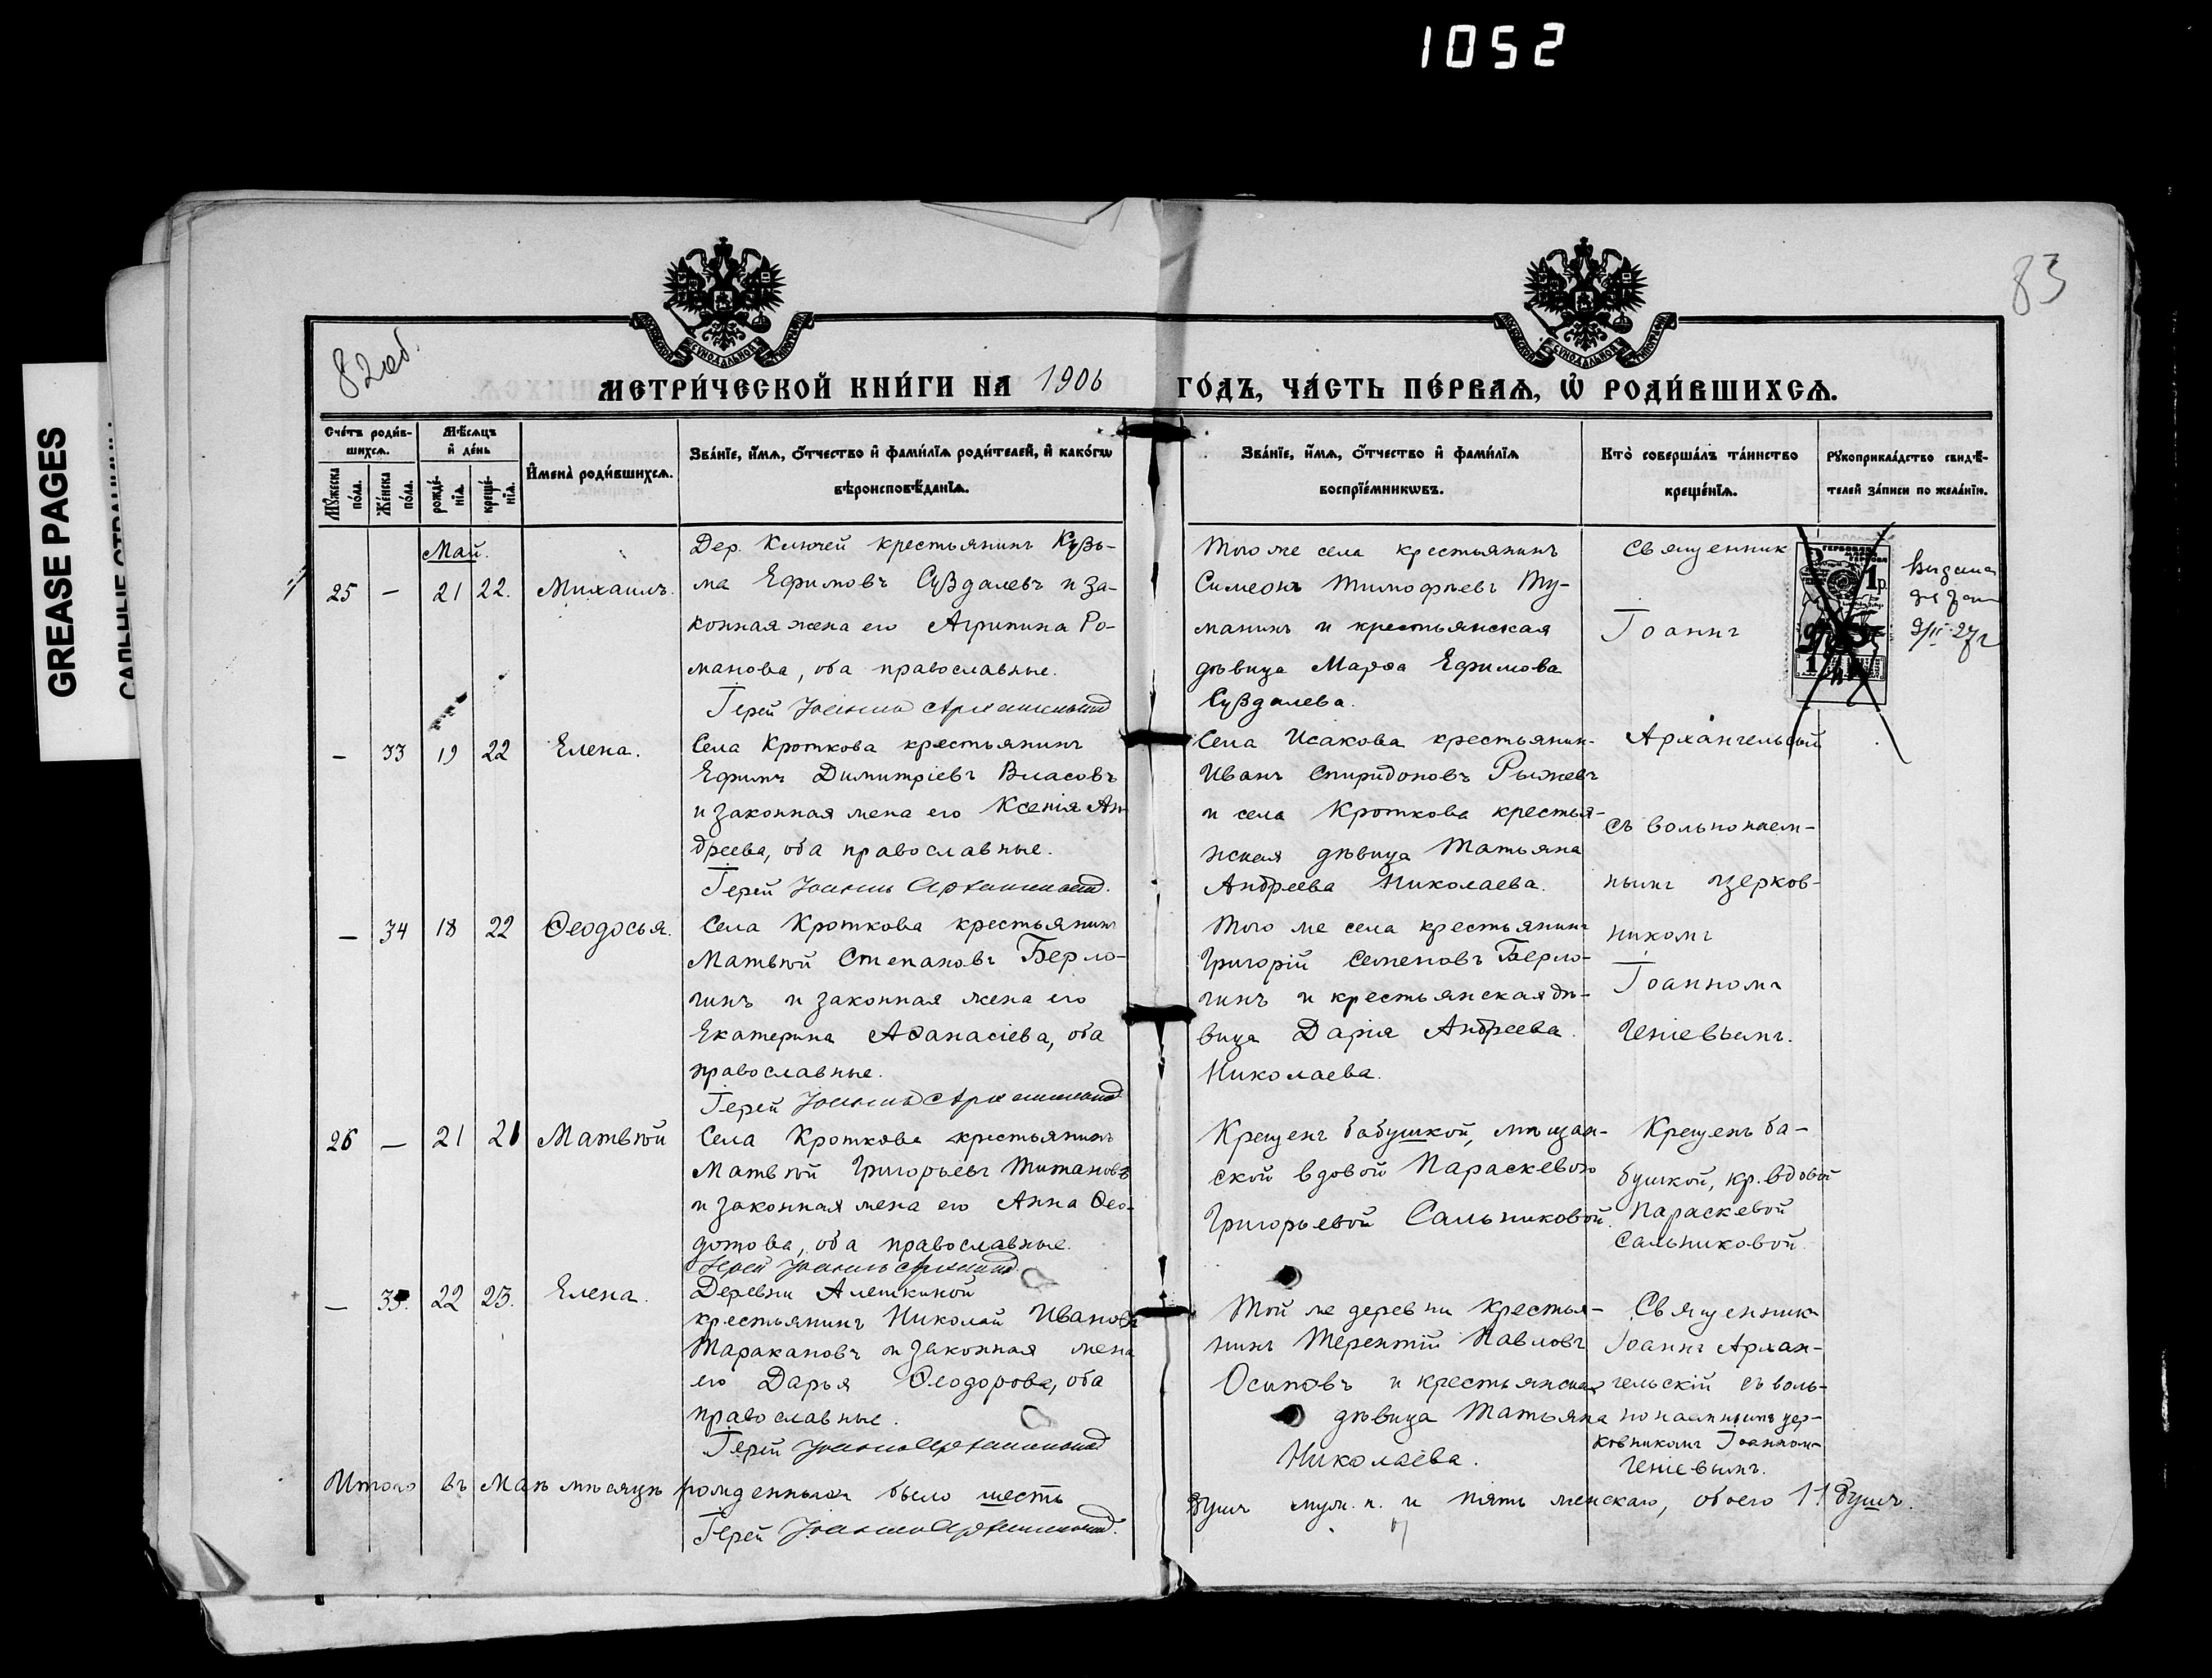 1052
GREASE PAGES
82об.
83
МЕТРИ́ЧЕСКОЙ КНИ́ГИ НА 1906 ГО́ДЪ, ЧА́СТЬ ПЕ́РВАѦ, Ѽ РОДИ́ВШИХСѦ.
Сче́тъ роди́в-
шихсѧ.
Мꙋ́жеска
по́ла.
Же́нска
по́ла.
Мѣ́сѧцъ
и҆ де́нь
рожде́-
нїѧ.
креще́-
нїѧ.
И҆мена̀ роди́вшихсѧ.
Зва́нїе, и҆́мѧ, ѻ҆́тчество и҆ фами́лїѧ роди́телей, и҆ како́гѡ
вѣроисповѣ́данїѧ.
Зва́нїе, и҆́мѧ, ѻ҆́тчество и҆ фами́лїѧ
воспрїе́мникѡвъ.
Кто̀ соверша́лъ та́инство
креще́нїѧ.
Рꙋкоприкла́дство свидѣ́-
телей за́писи по жела́нїю.
Май.
25 — 21 22. Михаилъ.
Дер. Ключей крестьянинъ Кузь-
ма Ефимовъ Суздалевъ и за-
конная жена его Агрипина Ро-
манова, оба православные.
Іерей Іоаннъ Архангельскій
Того же села крестьянинъ
Симеонъ Тимофѣевъ Ту-
манинъ и крестьянская
дѣвица Марѳа Ефимова
Суздалева.
Священникъ
Іоаннъ
Архангельскій
съ вольнонаем-
нымъ церков-
никомъ
Іоанномъ
Геніевымъ.
1р.
— 33 19 22 Елена.
Села Кроткова крестьянинъ
Ефимъ Димитріевъ Власовъ
и законная жена его Ксенія Ан-
дреева, оба православные.
Іерей Іоаннъ Архангельскій.
Села Исакова крестьянин-
Иванъ Спиридоновъ Рыжевъ
и села Кроткова крестья-
нская дѣвица Татьяна
Андреева Николаева.
— 34 18 22 Ѳеодосья.
Села Кроткова крестьянинъ
Матвѣй Степановъ Берло-
гинъ и законная жена его
Екатерина Аѳанасіева, оба
православные.
Іерей Іоаннъ Архангельскій
Того же села крестьянинъ
Григорій Семеновъ Берло-
гинъ и крестьянская дѣ-
вица Дарія Андреева.
Николаева.
26 — 21 21 Матвѣй
Села Кроткова крестьянинъ
Матвѣй Григорьевъ Титановъ
и законная жена его Анна Ѳео-
дотова, оба православные.
Іерей Іоаннъ Архангельскій
Крещенъ бабушкой, мѣщан-
ской вдовой Параскевою
Григорьевой Сальниковой.
Крещенъ ба-
бушкой, кр. вдовой
Параскевой
Сальниковой.
— 35. 22 23. Елена.
Деревни Алешкиной
крестьянинъ Николай Ивановъ
Таракановъ и законная жена
его Дарья Ѳеодорова, оба
православные.
Іерей Іоаннъ Архангельскій
Той же деревни крестья-
нинъ Терентій Павловъ
Осиповъ и крестьянская
дѣвица Татьяна
Николаева.
Священникъ
Іоаннъ Архан-
гельскій съ воль-
нонаемнымъ цер-
ковникомъ Іоанном-
Геніевымъ.
Итого въ Маѣ мѣсяцѣ рожденныхъ было шесть душъ муж. п. и пять женскаго, обоего 11 душъ.
Іерей Іоаннъ Архангельскій.